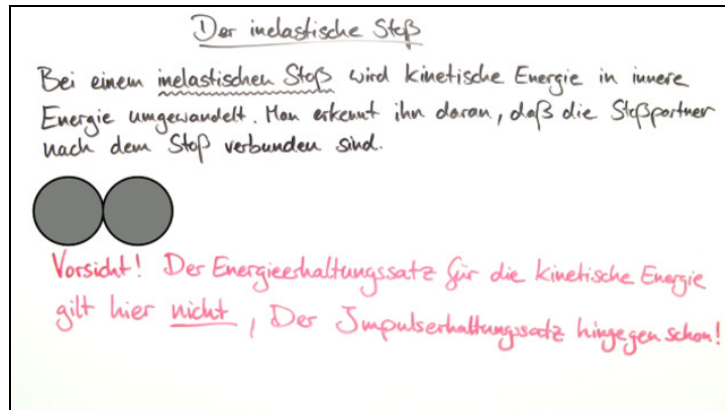 Der inelastische Stoß
Bei einem inelastischen Stoß wird kinetische Energie in innere
Energie umgewandelt. Man erkennt ihn daran, daß die Stoßpartner
nach dem Stoß verbunden sind.
Vorsicht! Der Energieerhaltungssatz für die kinetische Energie
gilt hier nicht, Der Impulserhaltungssatz hingegen schon!